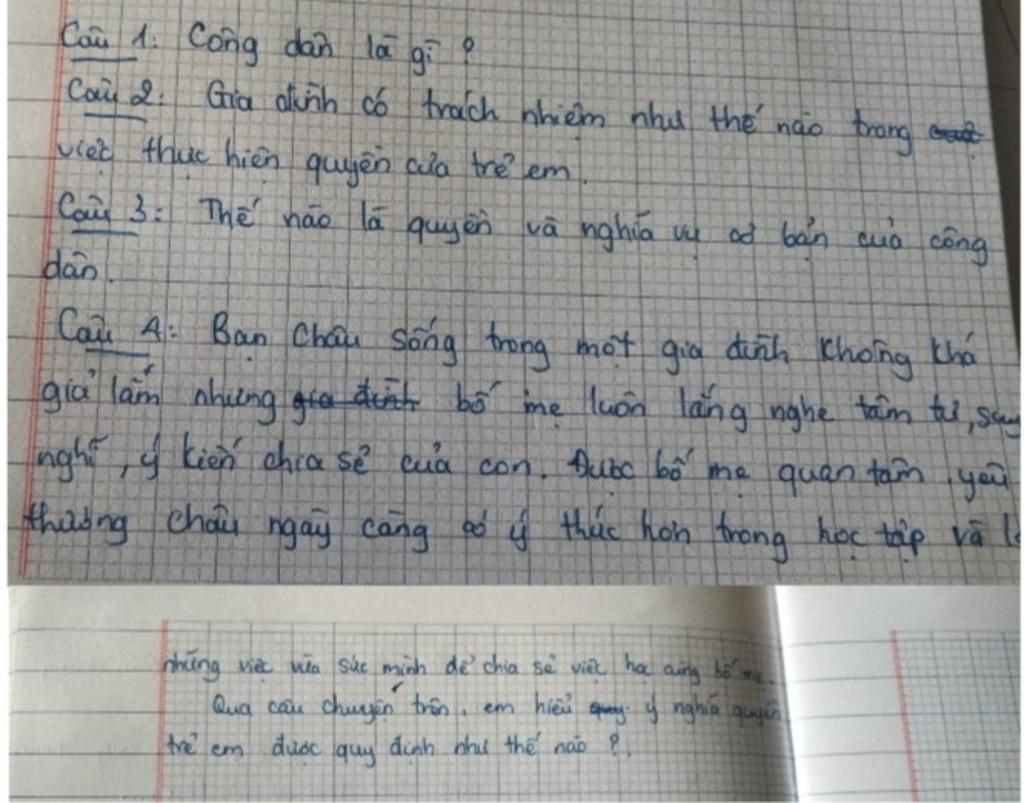 Câu 1: Công dân là gì?
Câu 2: Gia đình có trách nhiệm như thế nào trong
việc thực hiện quyền của trẻ em.
Câu 3: Thế nào là quyền và nghĩa vụ cơ bản của công
dân.
Câu 4: Bạn Châu sống trong một gia đình không khá
giả lắm nhưng bố mẹ luôn lắng nghe tâm tư, suy
nghĩ, ý kiến chia sẻ của con. Được bố mẹ quan tâm, yêu
thương Châu ngày càng có ý thức hơn trong học tập và
những việc vừa sức mình để chia sẻ việc cùng bố mẹ
Qua câu chuyện trên, em hiểu ý nghĩa quyền
trẻ em được quy định như thế nào?.